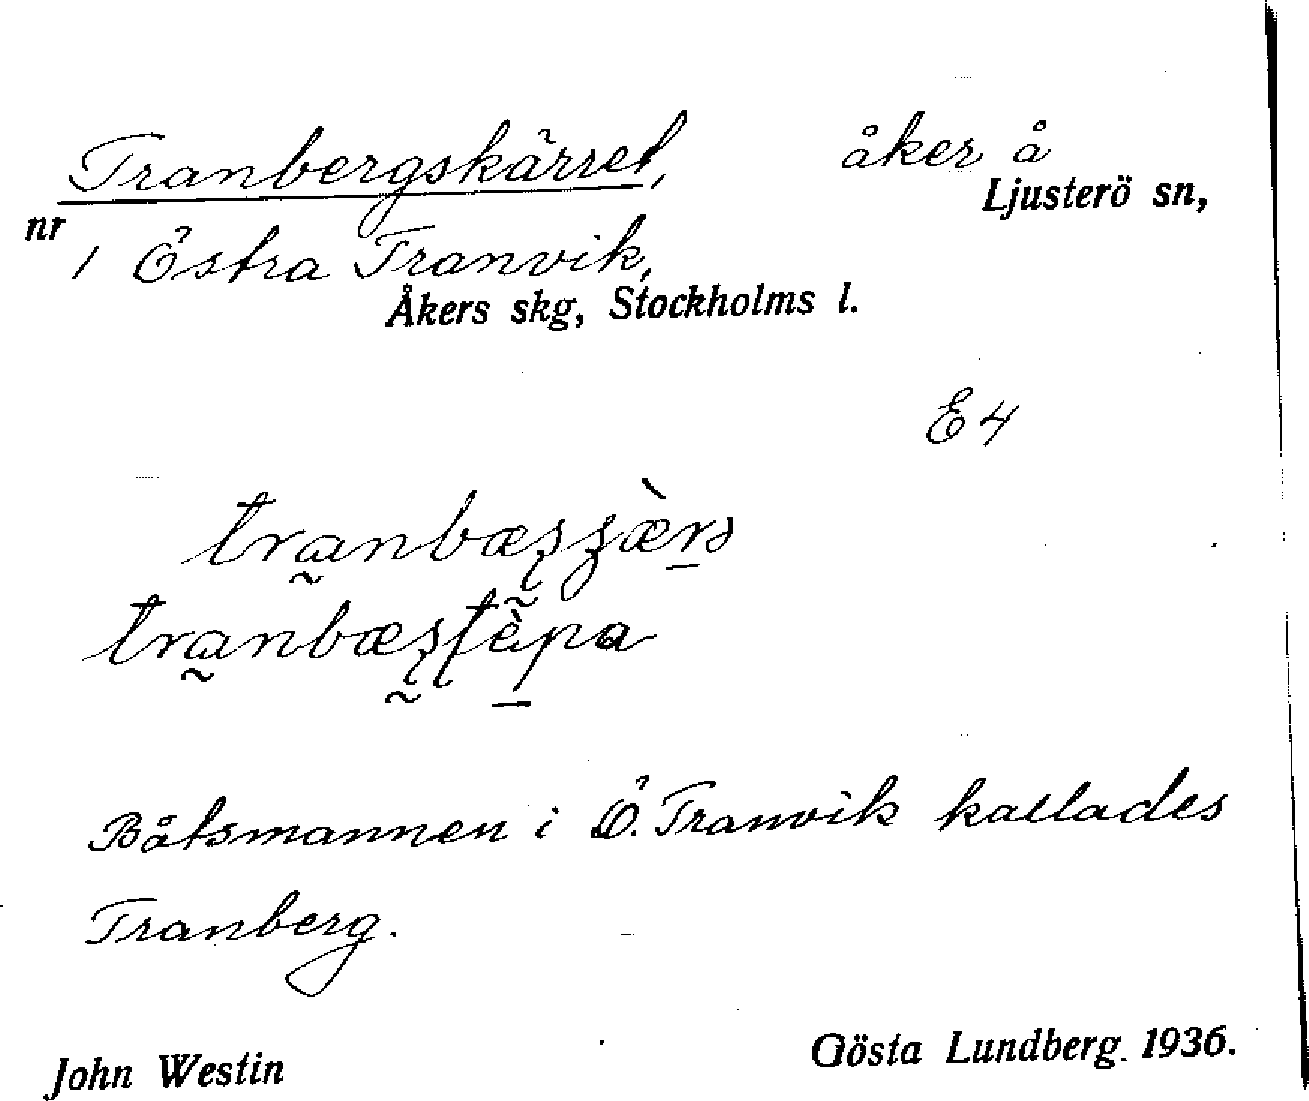 Tranbergskärret, åker å
Ljusterö sn,
nr
1 Östra Tranvik,
Åkers skg, Stockholms l.
E 4
Båtsmannen i Ö. Tranvik kallades
Tranberg.
John Westin Gösta Lundberg. 1936.